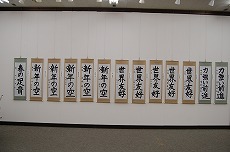 春の足音
新年の空
新年の空
新年の空
新年の空
新年の空
世界友好
世界友好
世界友好
世界友好
世界友好
力強い前進
力強い前進